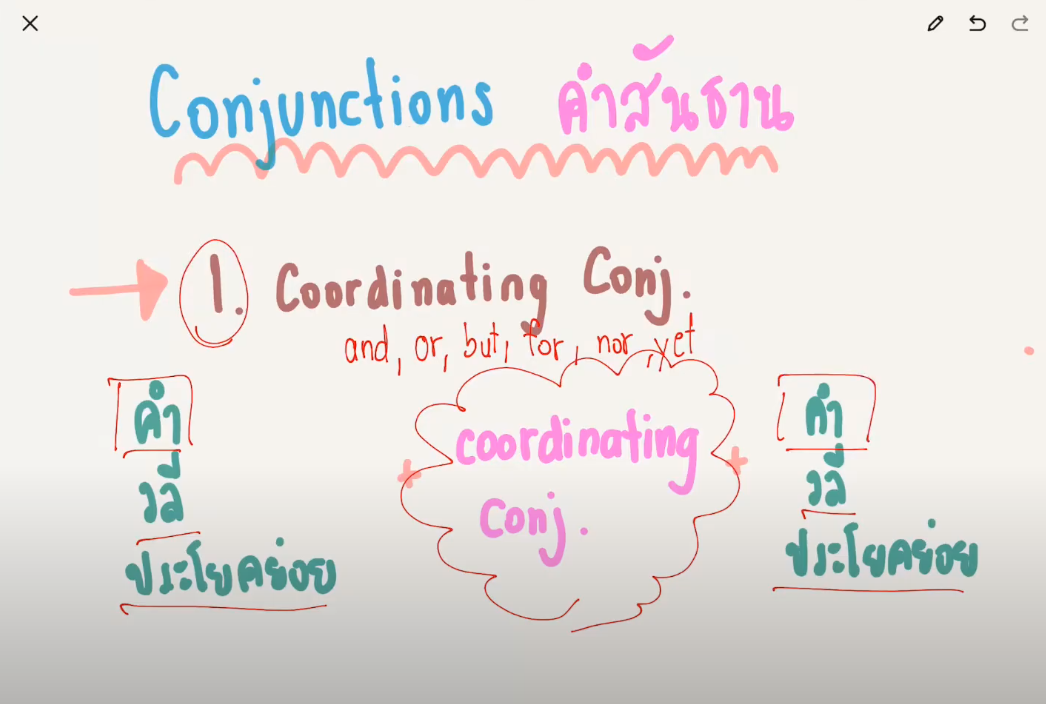 Conjunctions คำสันธาน
1. Coordinating Conj.
and, or, but, for, nor, yet
คำ
วลี
ประโยคย่อย
+ coordinating +
conj.
คำ
วลี
ประโยคย่อย